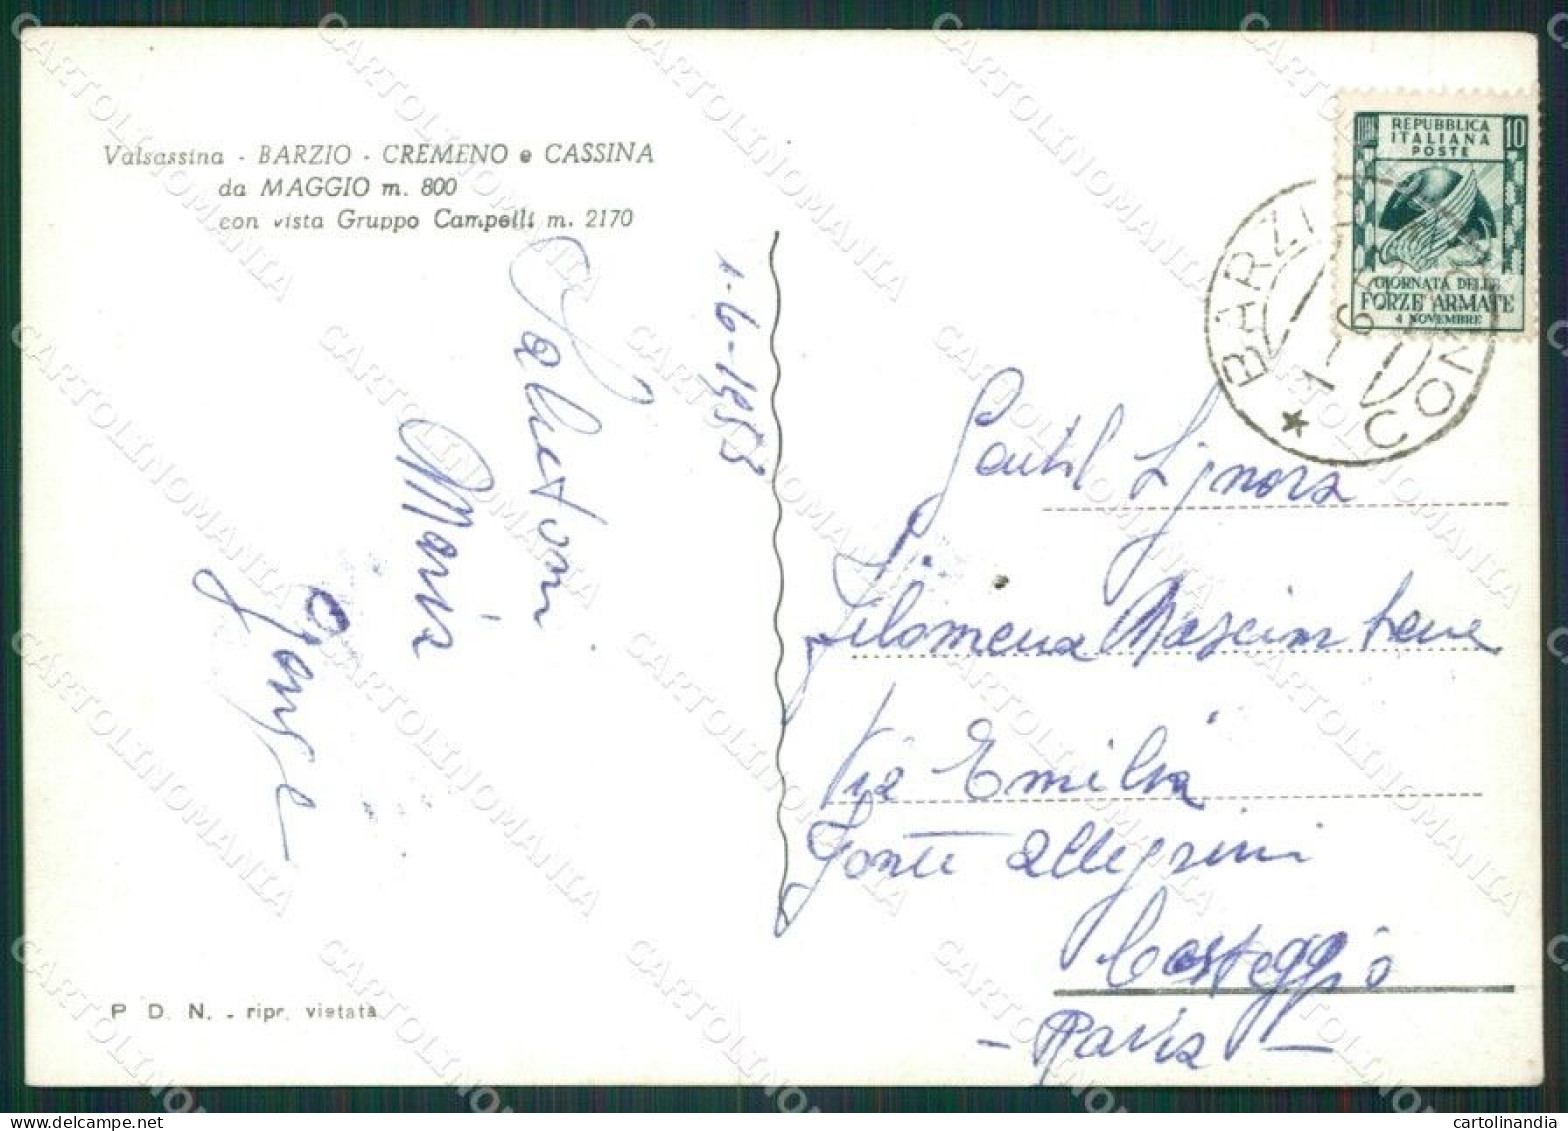 Valsassina - BARZIO - CREMENO e CASSINA
da MAGGIO m. 800
con vista Gruppo Campelli m. 2170
REPUBBLICA
ITALIANA
POSTE
10
GIORNATA DELLE
FORZE ARMATE
4 NOVEMBRE
BARZIO
COMO
1-6
1-6-1953
Salutoni
Maria
Gentil Signora
Filomena
Via Emilia
Fonte Allegrini
Casteggio
- Pavia -
P D. N. - ripr. vietata
CARTOLINOMANIA
cartolinandia